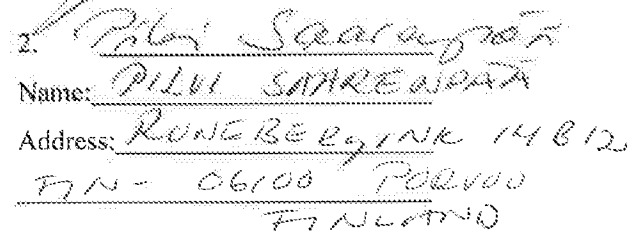 2. Pilvi Saarenpää
Name: PILVI SAARENPÄÄ
Address: RUNEBERGINK 14 B 12
FIN - 06100 PORVOO
FINLAND